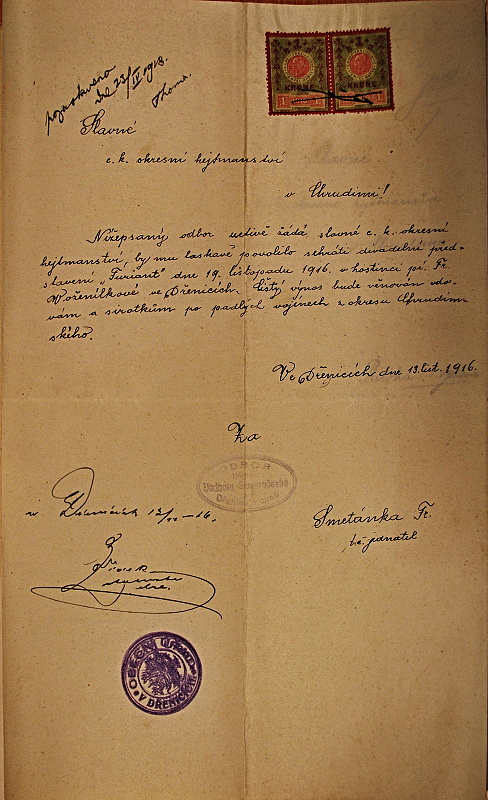 dne 23/IV 1918.
1 1
KRONE KRONE
1 1
Slavné
c. k. okresní hejtmanství
v Chrudimi!
Nížepsaný odbor uctivě žádá slavné c. k. okresní
hejtmanství, by mu laskavě povolilo sehráti divadelní před-
stavení „Furiant“ dne 19. listopadu 1916. v hostinci pí. Fr.
ve Dřenicích. Čistý výnos bude věnován vdo-
vám a sirotkům po padlých vojínech z okresu Chrudim
ského.
Ve Dřenicích dne 13. list. 1916.
Za
ODBOR
Smetánka Fr.
jednatel
v
OBECNÍ ÚŘAD
V DŘENICÍCH